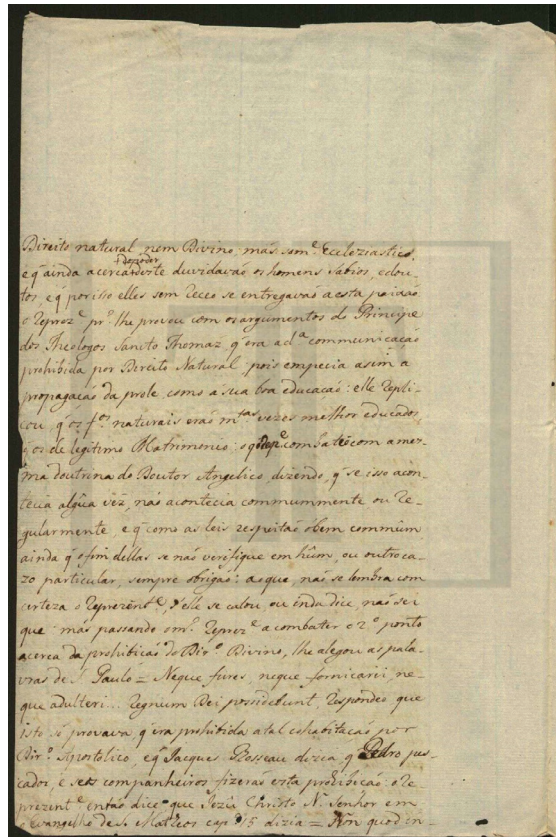 Direito natural, nem Divino, más som.e Ecclesiastico,
e q̃ ainda acerca do poder deste duvidavaõ os homens sabios, e dou-
tos, e q̃ por isso elles sem receo se entregavaõ a esta paixaõ
o Reprez.e pr.o lhe provou com os argumentos do Principe
dos Theologos Sancto Thomaz, q̃ era a d.a communicaçaõ
prohibida por Direito Natural, pois empecia asim á
propagaçaõ da prole, como a sua boa educaçaõ: elle repli-
cou q̃ os f.os naturais eraõ m.tas vezes melhor educados,
q̃ os de legitimo Matrimonio: o q̃ o Rep.e combateo com a mes-
ma doutrina do Doutor Angelico, dizendo, q̃ se isso acon-
tecia algũa vêz, naõ acontecia commummente ou re-
gularmente, e q̃ como as leis respeitaõ o bem commũm
ainda q̃ o fim dellas se naõ verifique em hũm, ou outro ca-
zo particular, sempre obrigaõ: ao que, naõ se lembra com
certeza o Reprezent.e, se elle se calou, ou inda dice, naõ sei
que: mas passando o m.o Reprez.e a combater o 2.o ponto
acerca da prohibiçaõ do Dir.o Divino, lhe alegou as pala-
vras de S. Paulo = Neque fures, neque fornicarii, ne-
que adulteri... regnum Dei possidebunt, Respondeo que
isto só provava q̃ era prohibida a tal cohabitaçaõ por
Dir.o Apostolico, e q̃ Jacques Rosseau dizia q̃ Pedro pes-
cador, e seos companheiros fizeraõ esta prohibiçaõ: o Re-
prezent.e entaõ dice que Jezu Christo N. Senhor em
o evangelho de S. Matteos cap. 15 dizia = Non quod in-